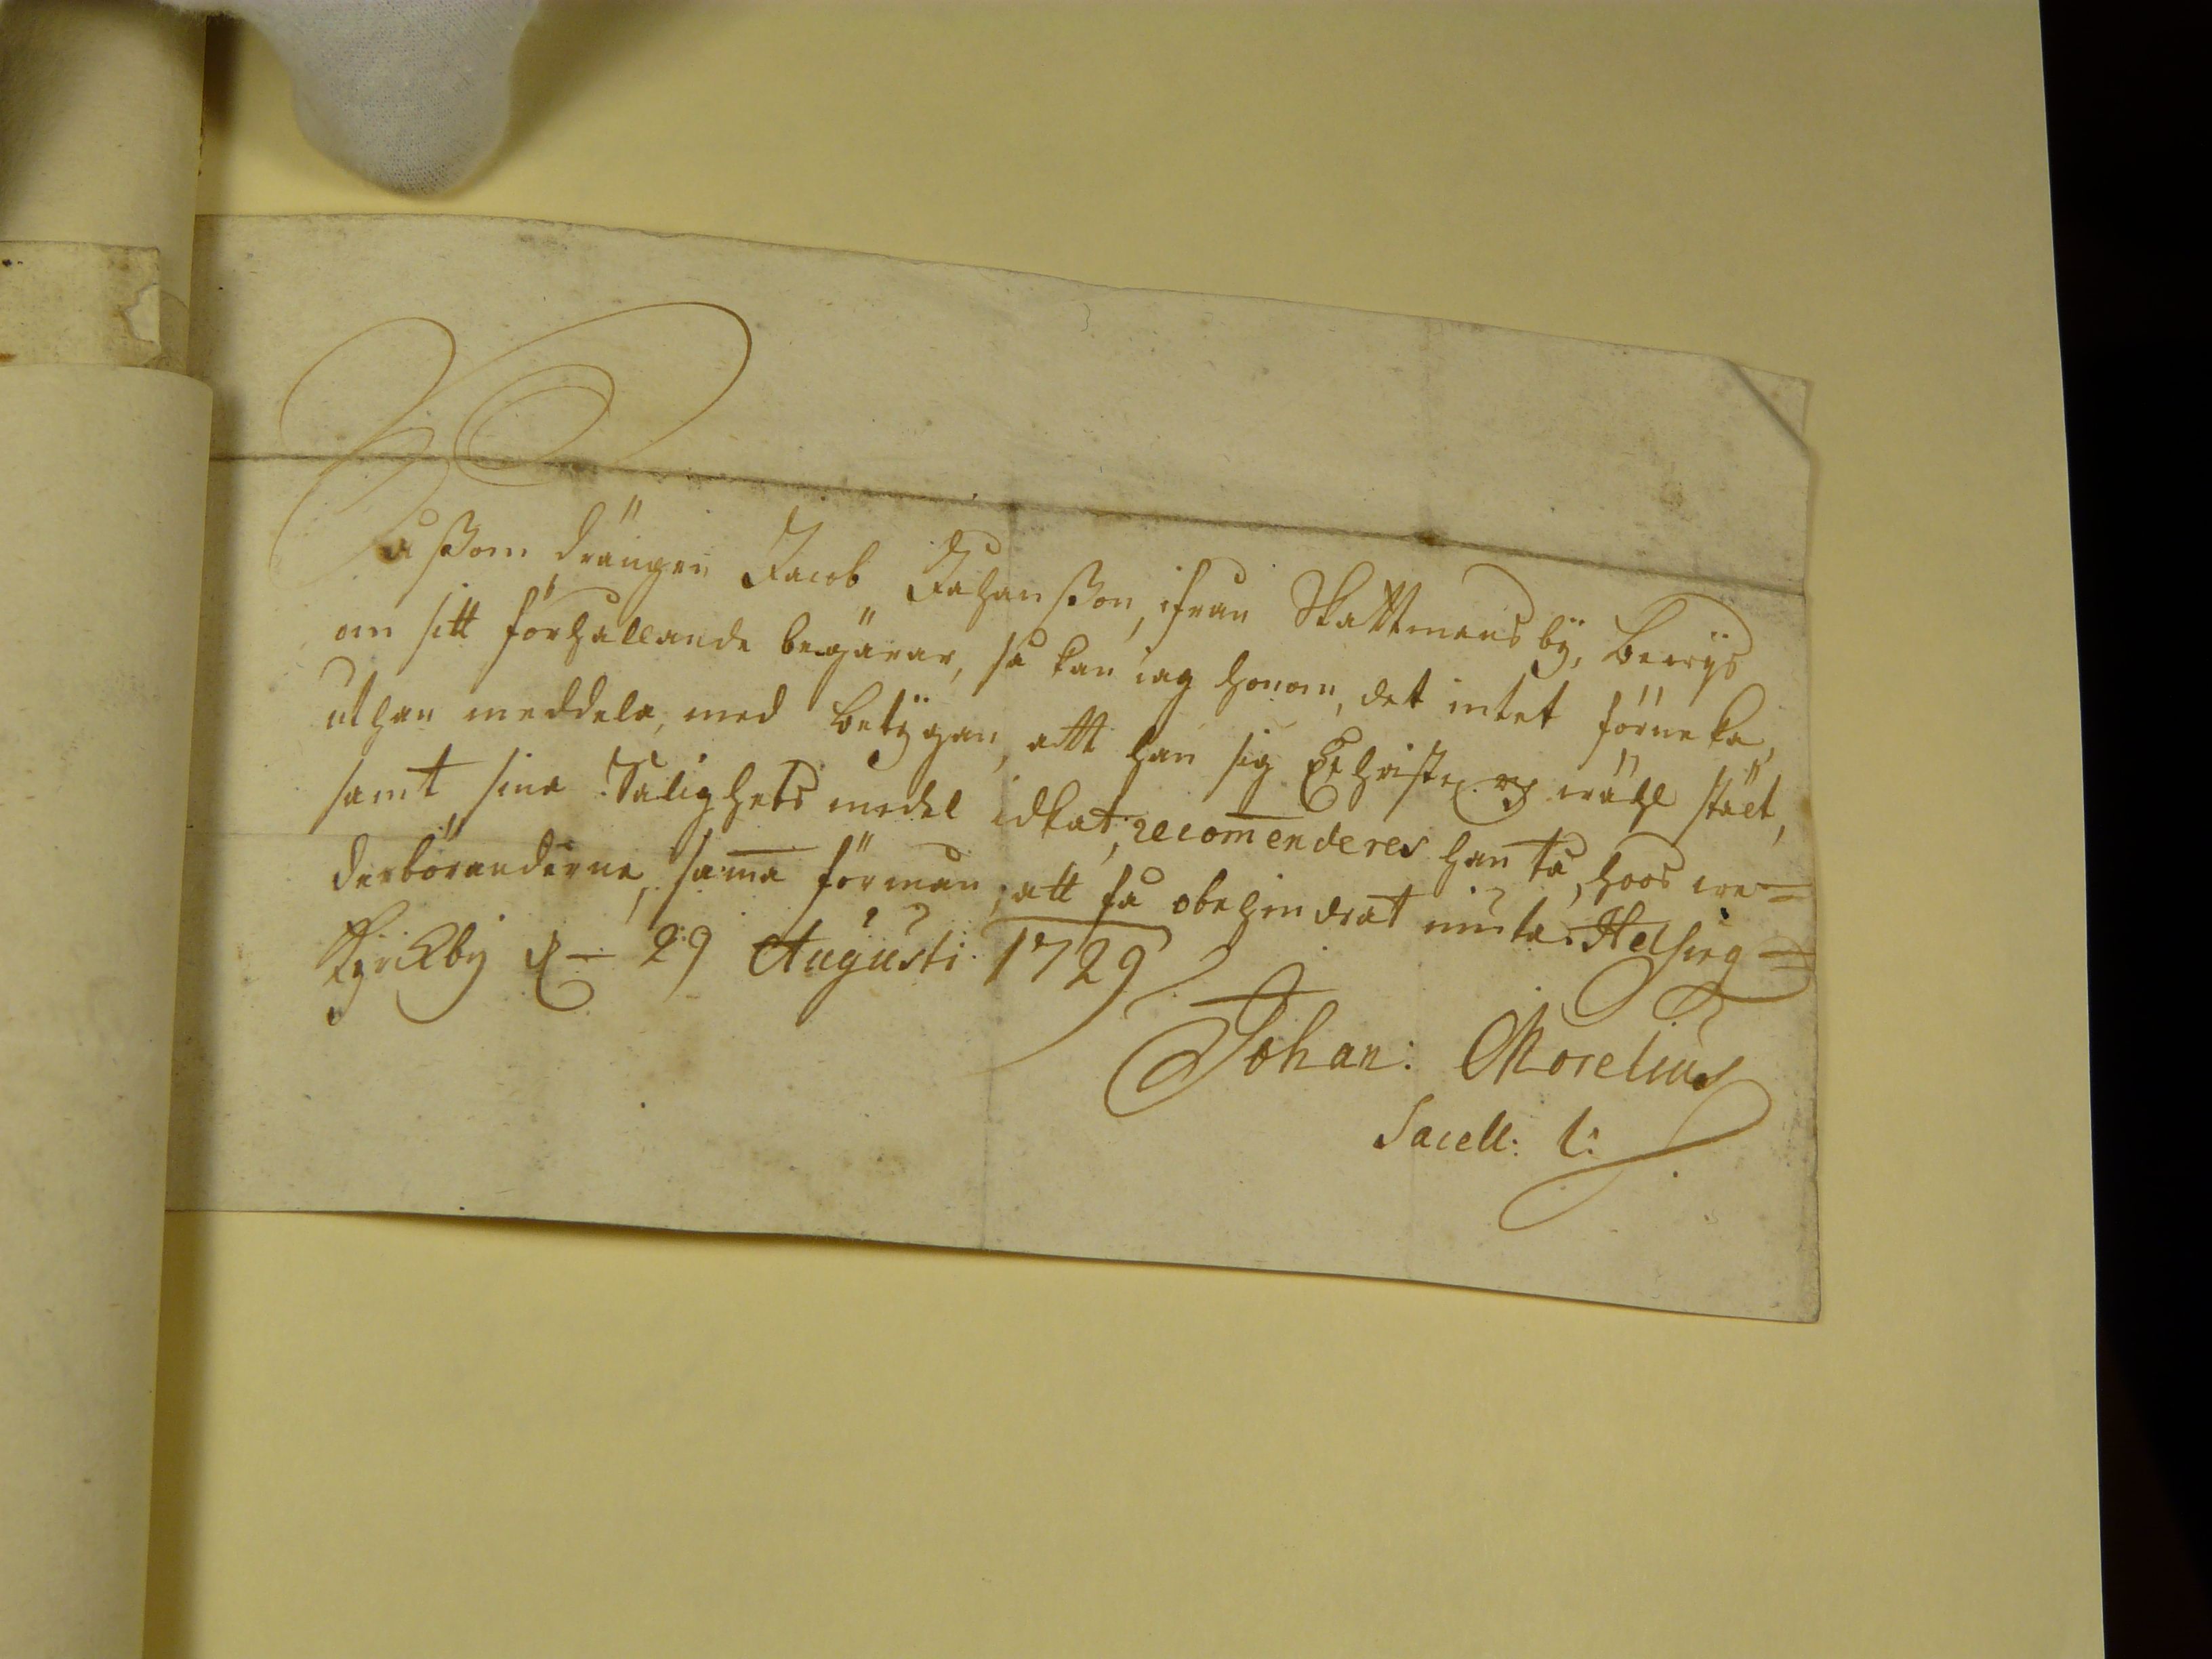 Såssom drängen Jacob Johansson, ifrån Skattmansby, bewijs
om sitt förhållande begärar, så kan iag honom, det intet förneka,
uthan meddela, med betÿgan, att han sig Christel. och wähl stält,
samt sina Salighets medel idkat; recom̅enderes han tå, hoos we=
derböranderne, sam̅a förmån, att få obehindrat niuta. Helsing=
Kyrckby d— 29 Augusti 1729
Johan: Morelius
Sacell: l: